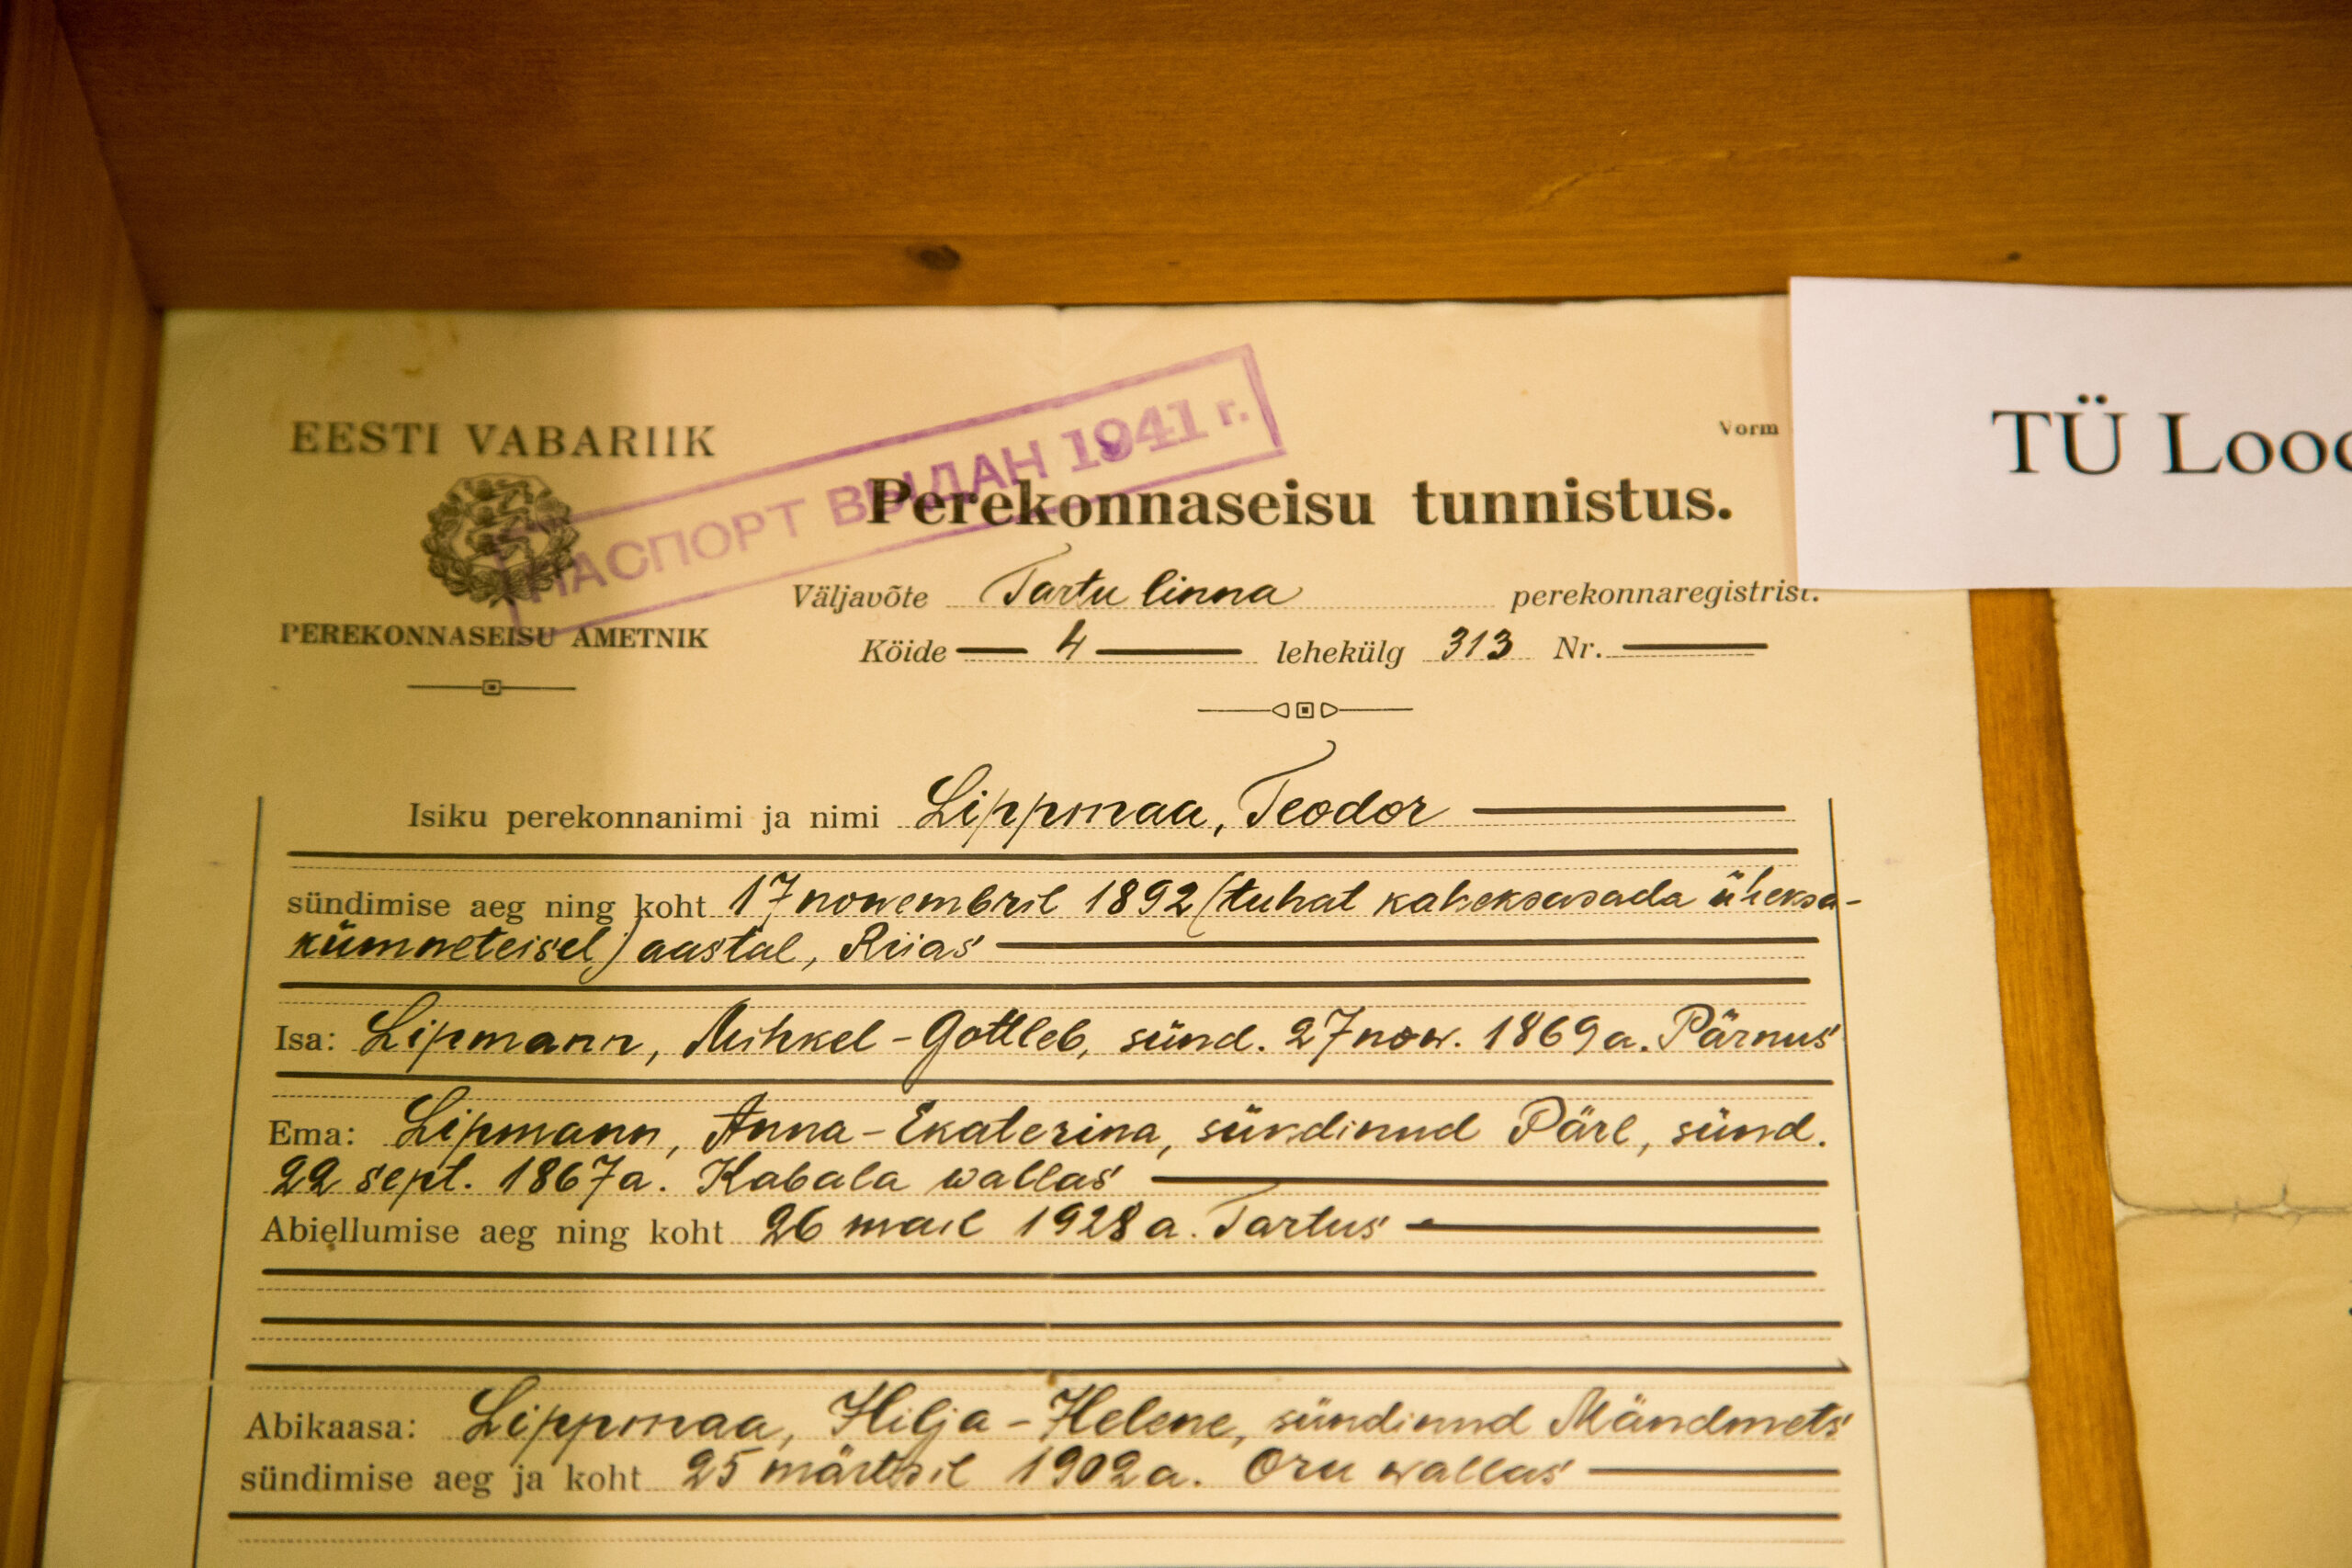 EESTI VABARIIK
PEREKONNASEISU AMETNIK
ПАСПОРТ ВЫДАН 1941 г.
Vorm
TÜ Lood
Perekonnaseisu tunnistus.
Väljavõte Tartu linna perekonnaregistrist.
Köide 4 lehekülg 313 Nr.
Isiku perekonnanimi ja nimi Lippmaa, Teodor
sündimise aeg ning koht 17 nowembril 1892 (tuhat kaheksasada üheksa-
kümneteisel) aastal, Riias
Isa: Lipmann, Mihkel-Gottleb, sünd. 27 now. 1869 a. Pärnus
Ema: Lipmann, Anna-Ekaterina, sündinud Pärl, sünd.
22 sept. 1867 a. Kabala wallas
Abiellumise aeg ning koht 26 mail 1928 a. Tartus
Abikaasa: Lippmaa, Hilja-Helene, sündinud Mändmets
sündimise aeg ja koht 25 märtsil 1902 a. Oru wallas